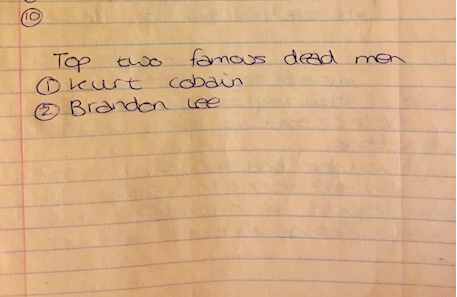 10
Top two famous dead men
1 Kurt cobain
2 Brandon Lee